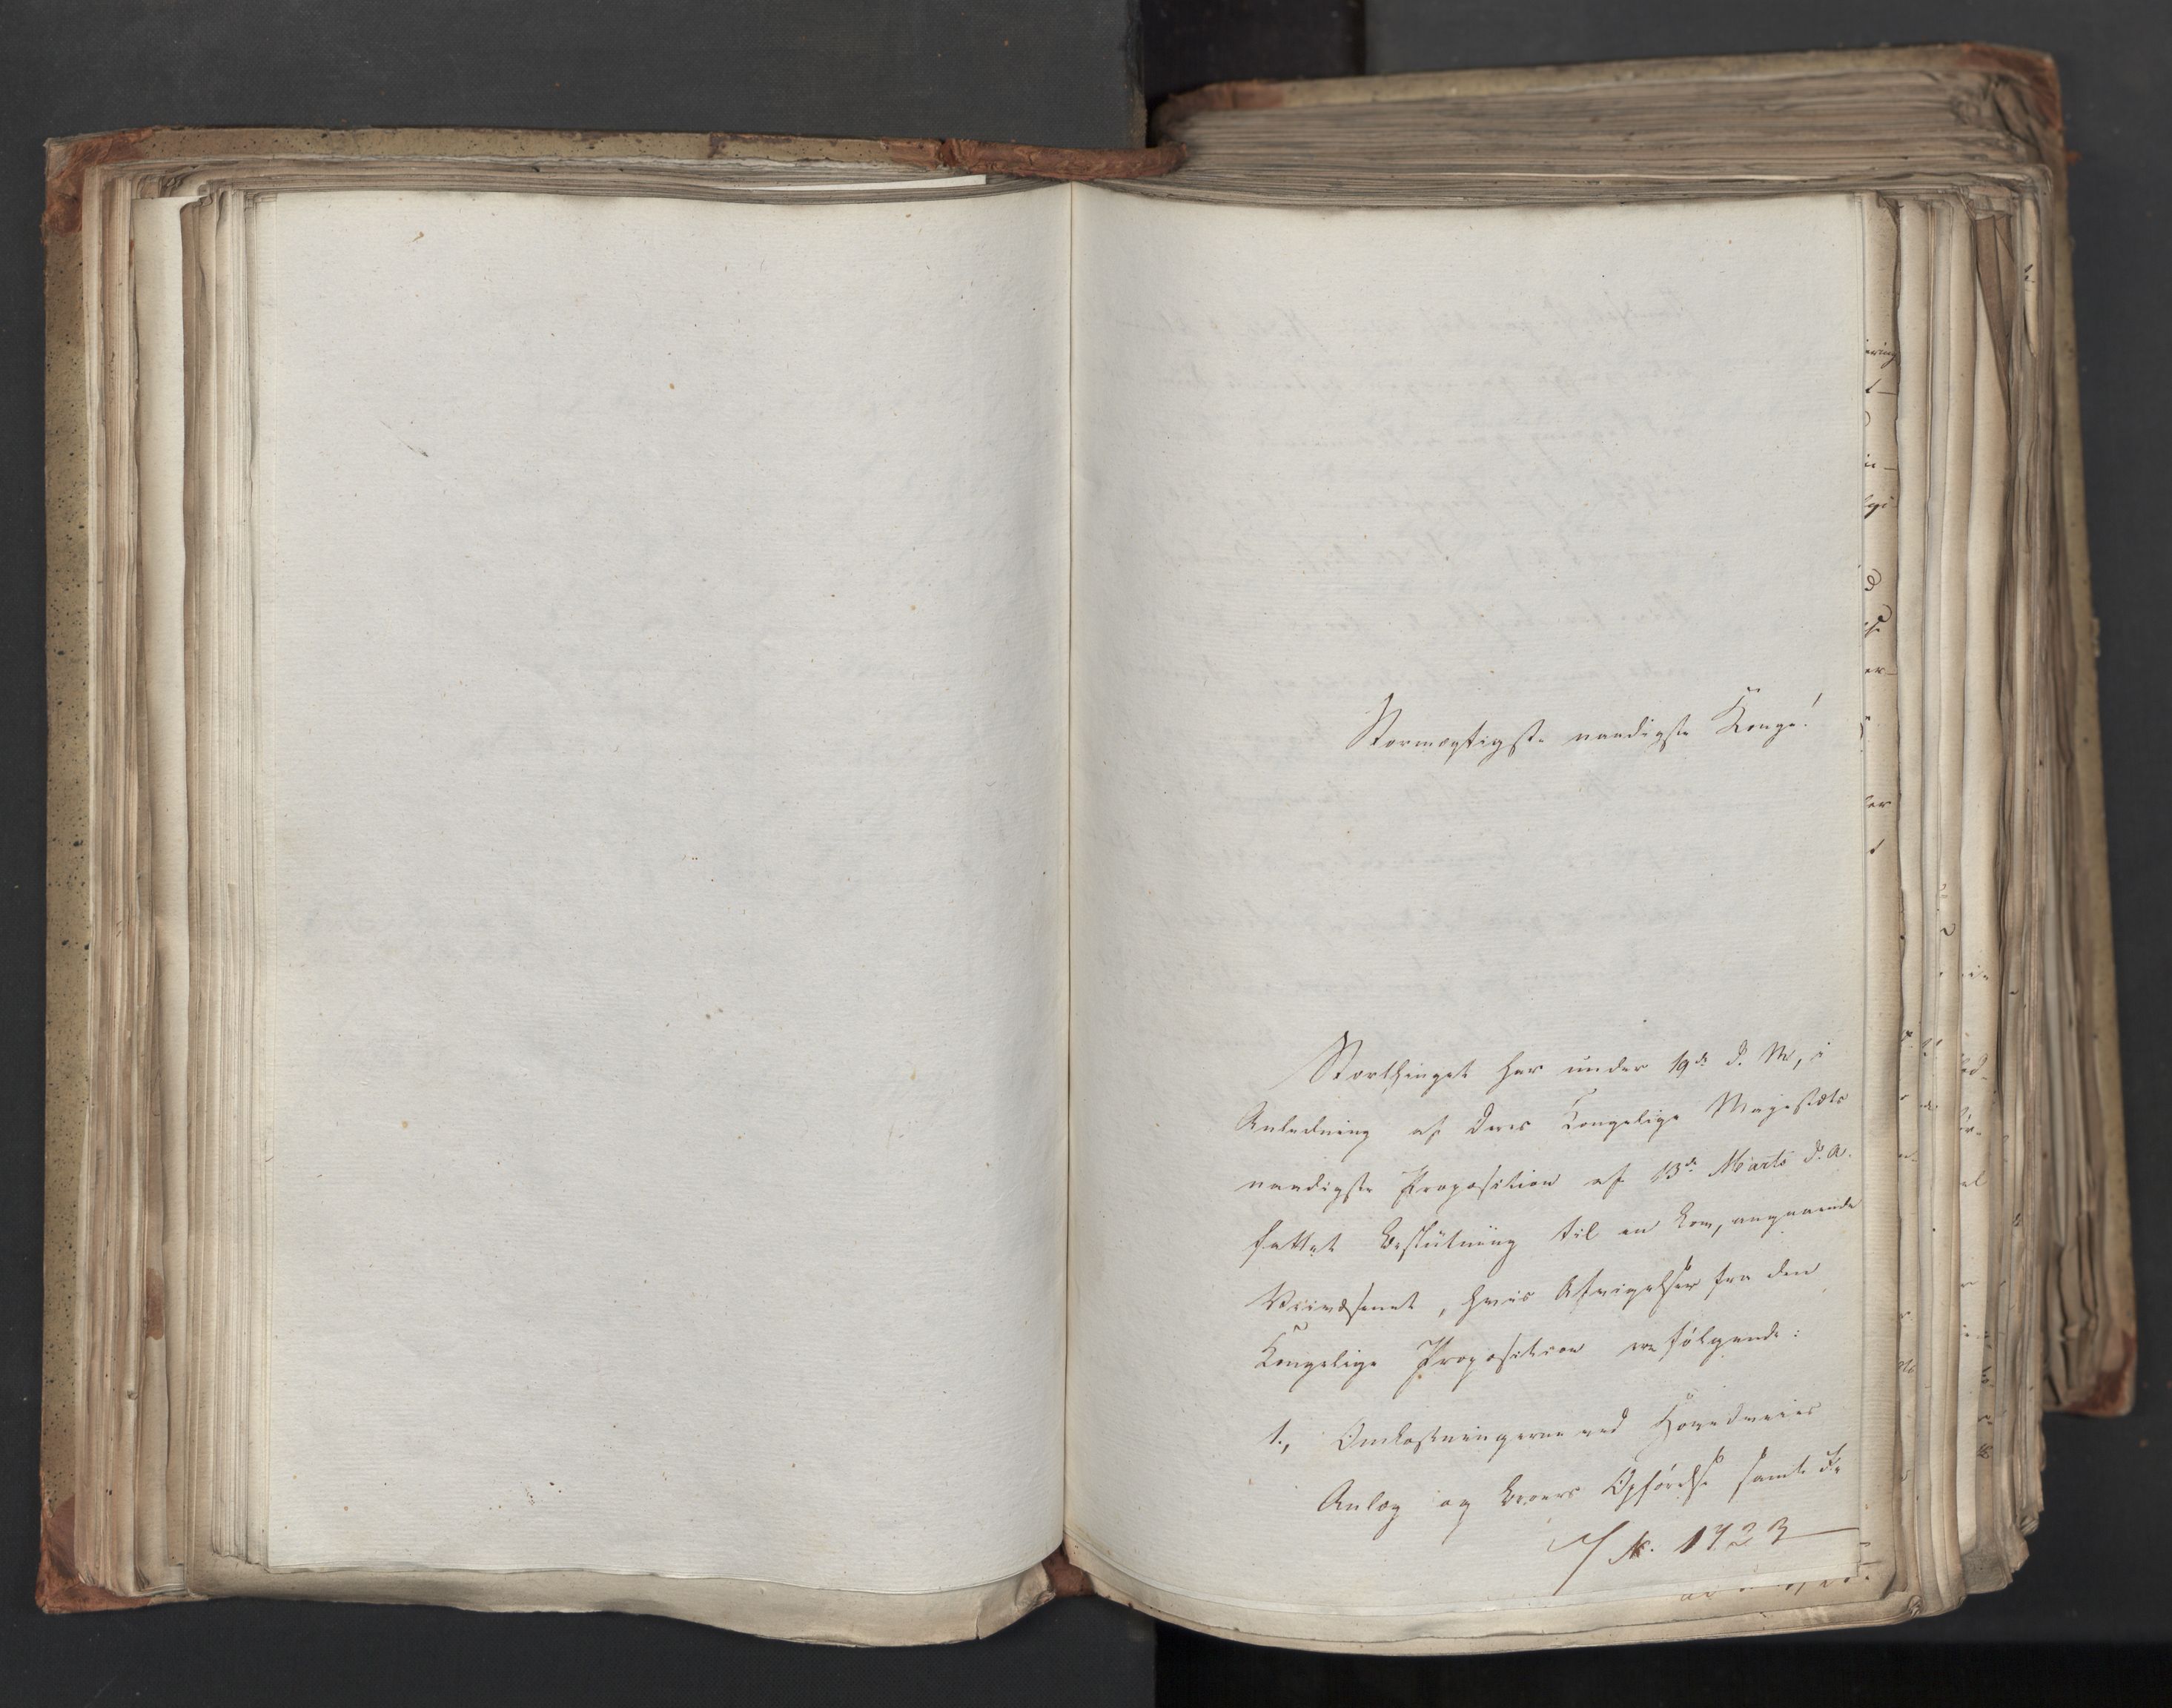 Stormægtigste naadigste Konge!
Storthinget har under 19de d. M, i
Anledning af Deres Kongelige Majestæts
naadigste Proposition af 13de Marts d. A.
fattet Beslutning til en Lov, angaaende
Veivæsenet, hvis Afvigelser fra den
Kongelige Proposition ere følgende:
1., Omkostningerne ved Hovedveies
Anlæg og Broers Opførelse samt de
No. 1723